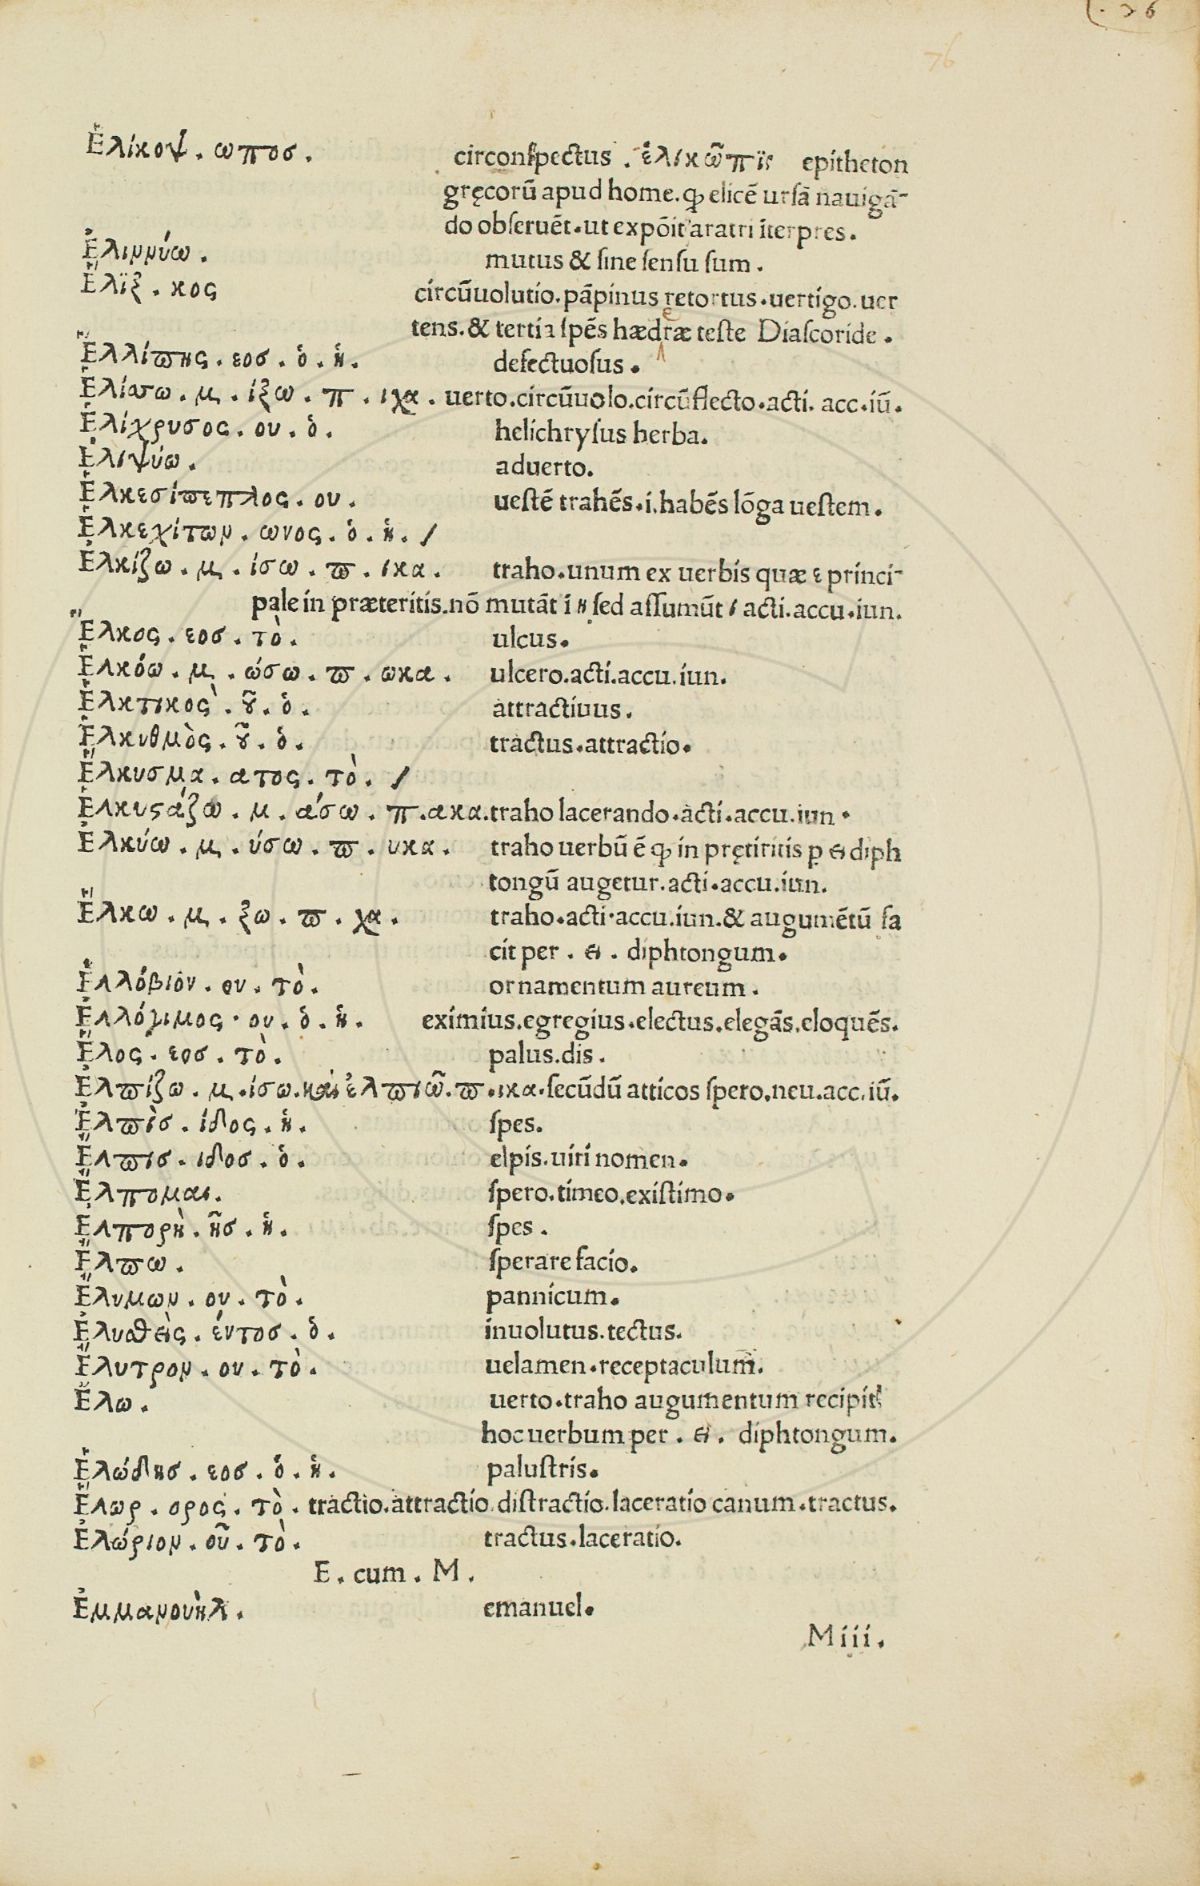 76
76
Ἑλίκοψ . ωποσ . circonſpectus . ἑλικῶπις epitheton
gręcorū apud home . ꝙ elicē urſā nauigā-
do obſeruēt . ut expōit aratri īterpres .
Ἐλιννύω . mutus & ſine ſenſu ſum .
Ἕλϊξ . κος circūuolutio . pāpinus retortus . uertigo . uer
tens . & tertia ſpēs hædræ teſte Diaſcoride .
e
Ἐλλίπης . εοσ . ὁ . ἡ . defectuoſus .
Ἑλίσσω . μ . ίξω . π . ιχα . uerto . circūuolo . circūflecto . acti . acc . iū .
Ἑλίχρυσος . ου . ὁ . helichryſus herba .
Ἐλιψύω . aduerto .
Ἑλκεσίπεπλος . ου . ueſtē trahēs . i . habēs lōga ueſtem .
Ἑλκεχίτων . ωνος . ὁ . ἡ . /
Ἑλκίζω . μ . ίσω . π . ικα . traho . unum ex uerbis quæ ε princi-
pale in præteritis . nō mutāt ī η ſed aſſumūt ι acti . accu . iun .
Ἕλκος . εοσ . τὸ . ulcus .
Ἑλκόω . μ . ώσω . π . ωκα . ulcero . acti . accu . iun .
Ἑλκτικος̀ . οῦ . ὁ . attractiuus .
Ἑλκυθμὸς . οῦ . ὁ . tractus . attractio .
Ἕλκυσμα . ατος . τὸ . /
Ἑλκυςάζω . μ . άσω . π . ακα . traho lacerando . acti . accu . iun .
Ἑλκύω . μ . ύσω . π . υκα . traho uerbū ē ꝙ in pręteritis ꝑ ει diph
tongū augetur . acti . accu . iun .
Ἕλκω . μ . ξω . π . χα . traho . acti . accu . iun . & augumētū fa
cit per . ει . diphtongum .
Ἐλλόβιον . ου . τὸ . ornamentum aureum .
Ἐλλόγιμος . ου . ὁ . ἡ . eximius . egregius . electus . elegās . eloquēs .
Ἕλος . εοσ . τὸ . palus . dis .
Ἐλπίζω . μ . ίσω . καὶ ἐλπιῶ . π . ικα . ſecūdū atticos ſpero . neu . acc . iū .
Ἐλπὶσ . ίδος . ἡ . ſpes .
Ἔλπισ . ιδοσ . ὁ . elpis . uiri nomen .
Ἔλπομαι . ſpero . timeo . exiſtimo .
Ἐλπορὴ . ῆσ . ἡ . ſpes .
Ἔλπω . ſperare facio .
Ἔλυμων . ου . τὸ . pannicum .
Ἐλυσθεὶς . έντοσ . ὁ . inuolutus . tectus .
Ἔλυτρον . ου . τὸ . uelamen . receptaculum .
Ἕλω . uerto . traho augumentum recipit
hoc uerbum per . ει . diphtongum .
Ἑλώδησ . εοσ . ὁ . ἡ . paluſtris .
Ἕλωρ . ορος . τὸ . tractio . attractio . diſtractio . laceratio canum . tractus .
Ἑλώριον . οῦ . τὸ . tractus . laceratio .
E . cum . M .
Ἐμμανουὴλ . emanuel .
Miii .